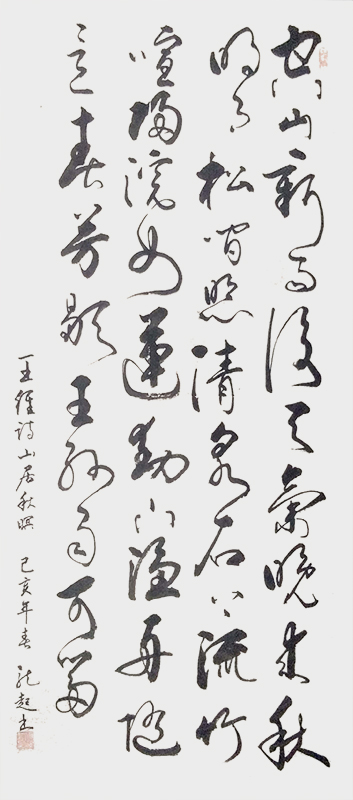 空山新雨後天氣晚來秋
明月松間照清泉石上流竹
喧歸浣女蓮動下漁舟隨
意春芳歇王孫自可留
王維詩山居秋暝 己亥年春 書